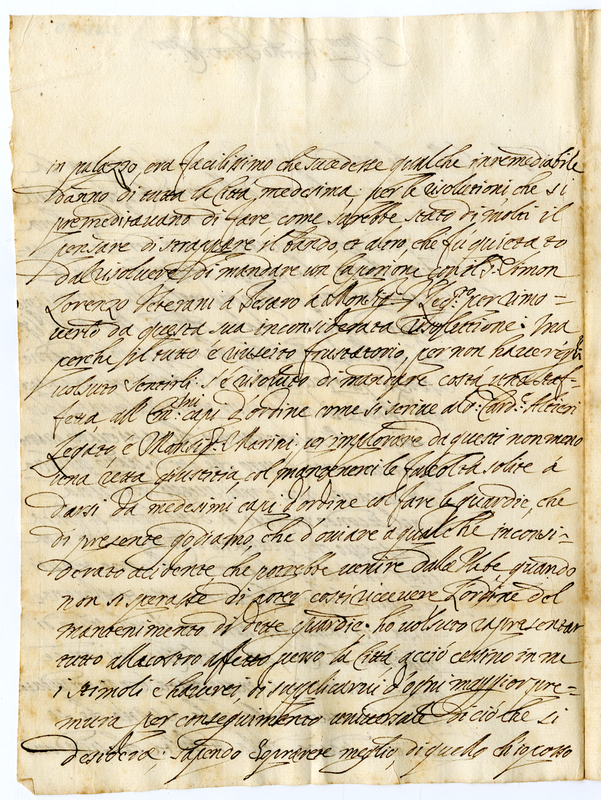 in palazzo, era facilissimo che succedesse qualche inremediabile
danno di tutta la città medesima, per le risolutioni che si
premeditavano di fare come sarebbe stato di molti il
pensare di strappare il bando, et altro, che fu quietato
dal risolvere di mandare un Caporione con il Sr. Simon
Lorenzo Veterani a Pesaro a Monsr. V. Leg.to per rimo-
verlo da questa sua inconsiderata
perche il tutto è riuscito frustatorio, per non haver egli
voluto sentirli. s'è risoluto di mandare costà una staf-
fetta all' Em.mi capi d'ordine come si scrive al Sr. Card. Altieri
Legato, e Monsigr. Marini, per implorare da questi non meno
una retta giustitia col mantenerci le facoltà solite a
darsi da medesimi capi d'ordine col fare le guardie, che
di presente godiamo, che d'oviare a qualche inconsi-
derato acidente che potrebbe venire dalla Plebe quando
non si sperasse di poter costì ricevere l'ordine del
mantenimento di dette guardie. ho voluto rapresentar
tutto alla vostro affetto verso la città acciò cessino in me
i stimoli e di suplicarvi d'ogni maggior pre-
mura per conseguimento universale di ciò che si
desidera, sapendo meglio, di quello ch'io posso